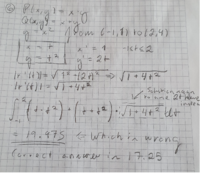 P(x,y) = x-y
Q(x,y) = x+y
y = x² from (-1,1) to (2,4)
x = t x' = 1 -1≤t≤2
y = t² y' = 2t
|r'(t)| = √(1² + (2t)²) => √(1+4t²)
|r'(t)| = √(1+4t²)
∫ (t-t²) + (t+t²) · √(1+4t²) dt
= 19.475 ← which is wrong
Correct answer is 17.25